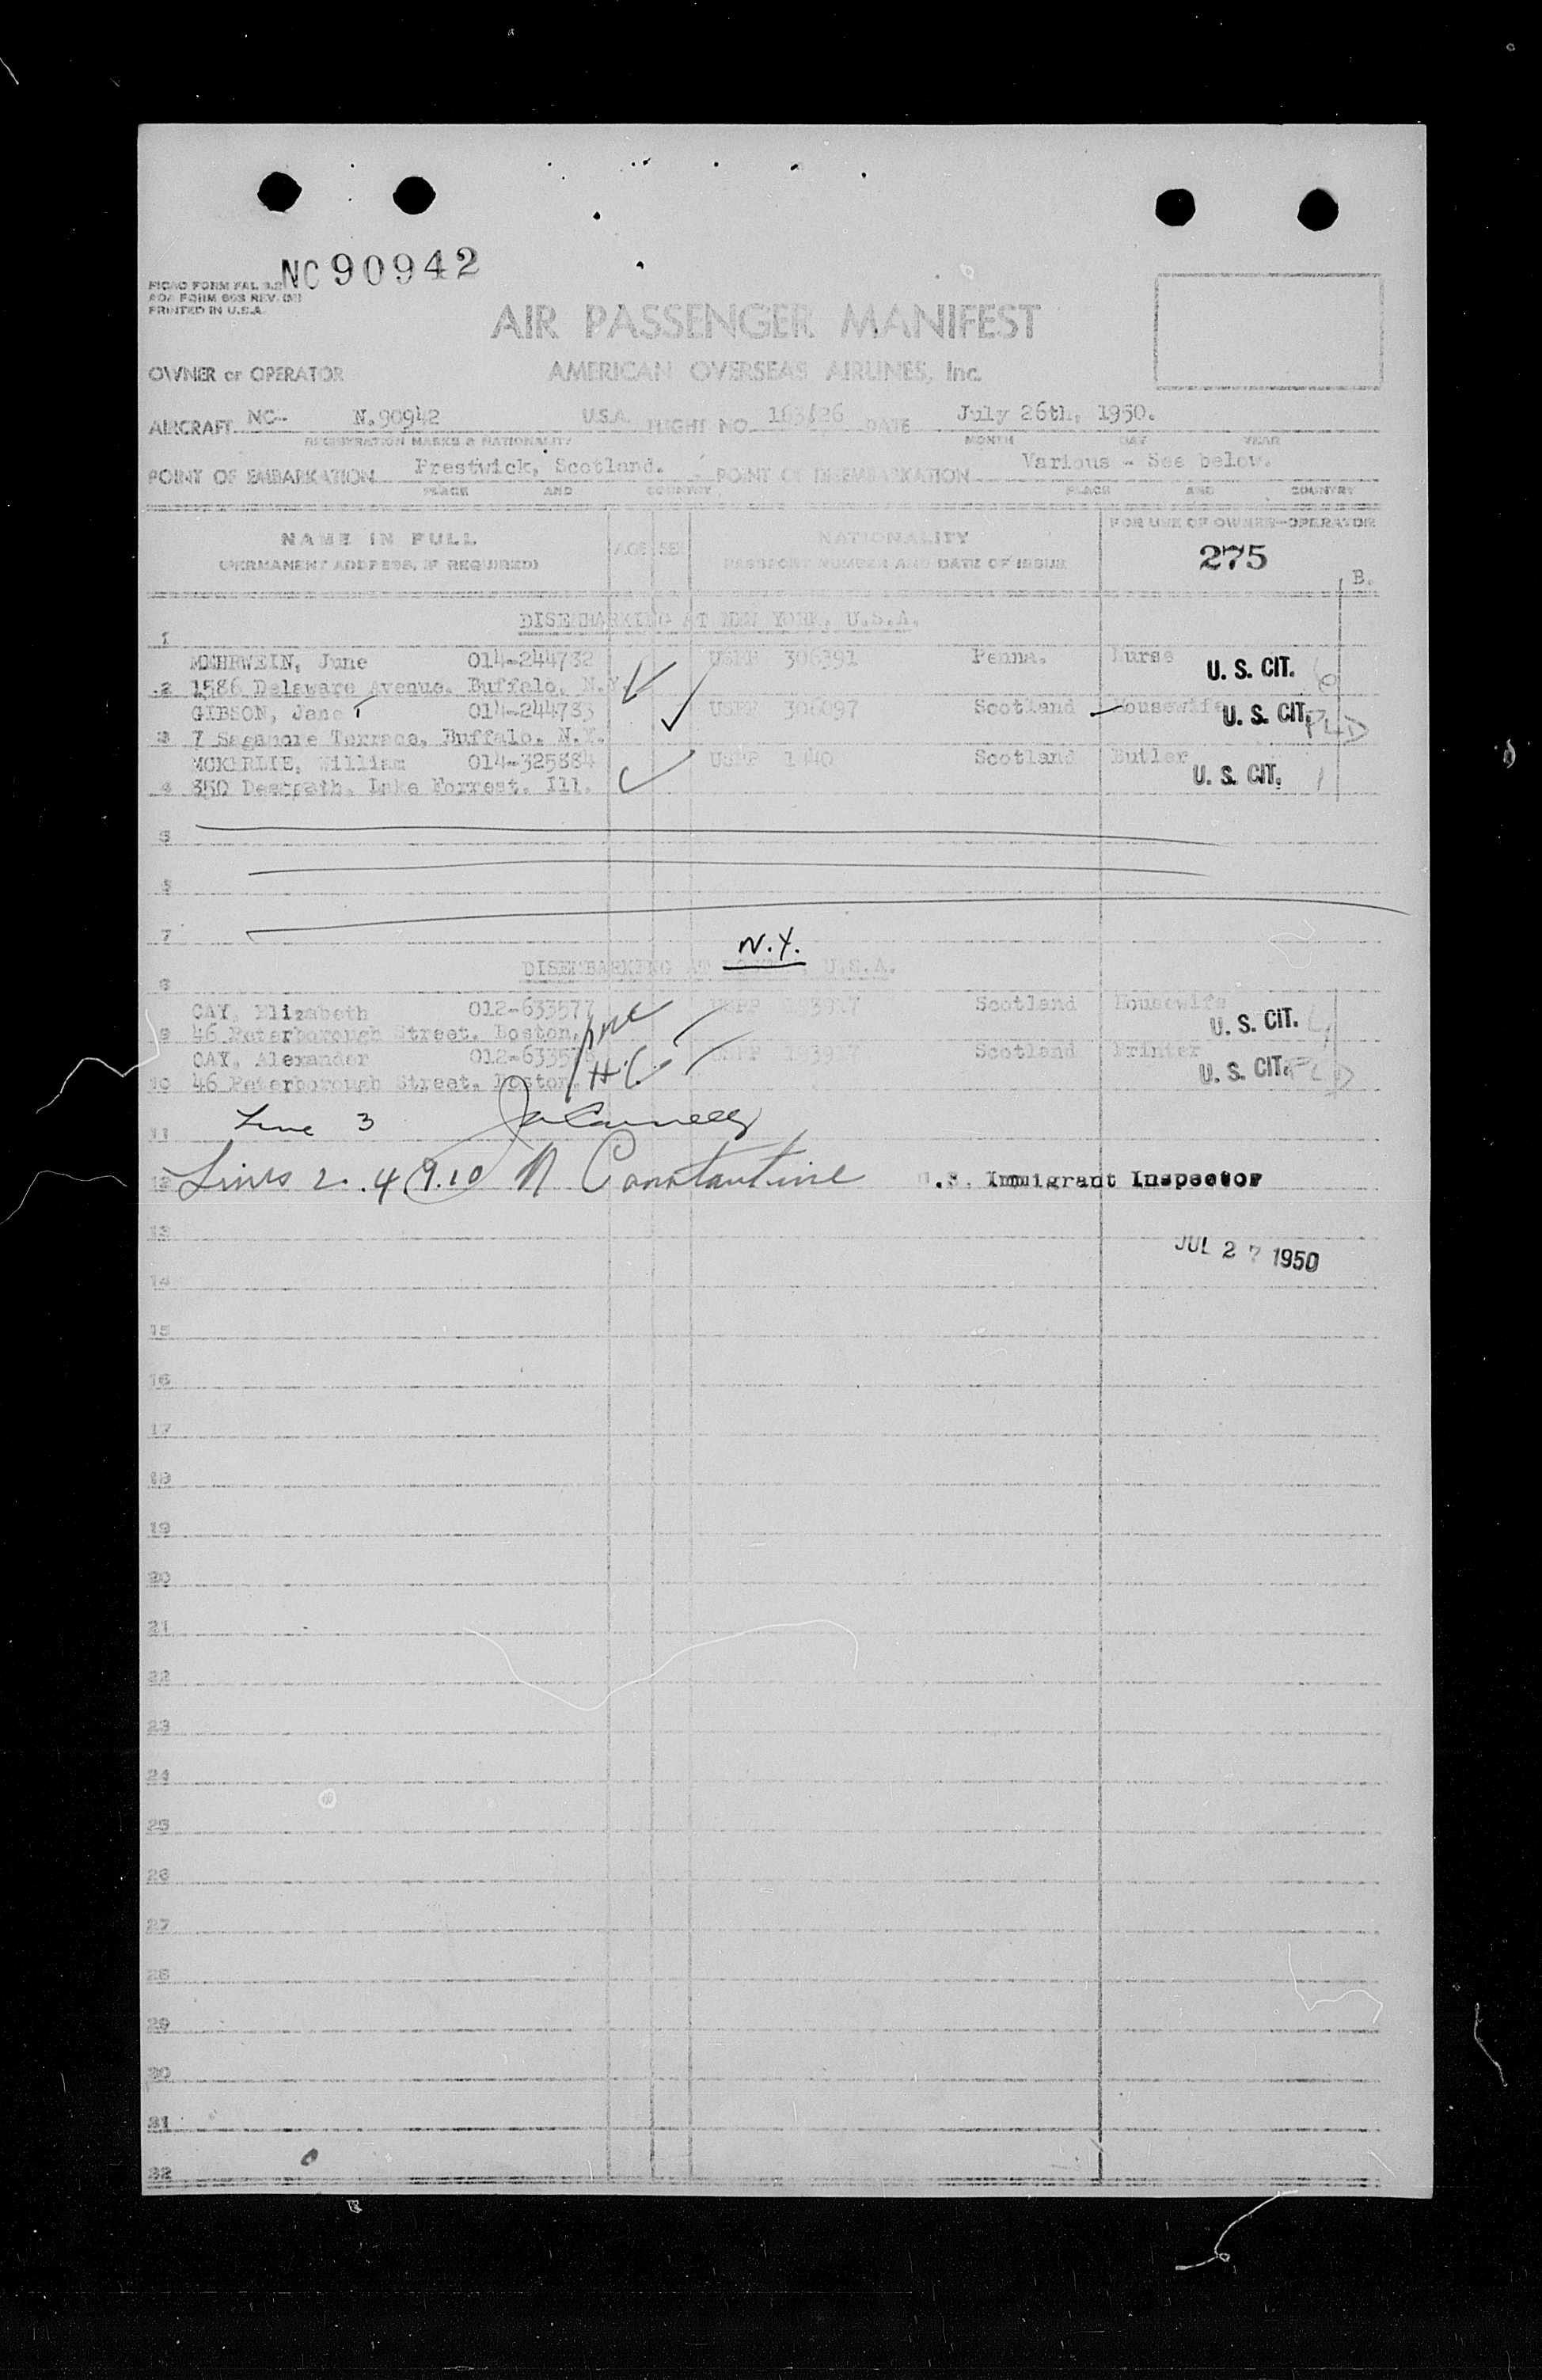 NC 90942
FICAO FORM FAL 3.2
AOA FORM 603 REV. (M)
PRINTED IN U.S.A.
AIR PASSENGER MANIFEST
OWNER or OPERATOR AMERICAN OVERSEAS AIRLINES, Inc.
AIRCRAFT NC- N.90942 U.S.A. FLIGHT NO. 163/26 DATE July 26th, 1950.
REGISTRATION MARKS & NATIONALITY MONTH DAY YEAR
POINT OF EMBARKATION Prestwick, Scotland. POINT OF DISEMBARKATION Various - See below.
PLACE AND COUNTRY PLACE AND COUNTRY
NAME IN FULL AGE SEX NATIONALITY FOR USE OF OWNER-OPERATOR
(PERMANENT ADDRESS, IF REQUIRED) PASSPORT NUMBER AND DATE OF ISSUE 275
B.
DISEMBARKING AT NEW YORK, U.S.A.
1
MEHRWEIN, June 014-244732 USPP 306391 Penna. Nurse U. S. CIT. 6
2 1586 Delaware Avenue. Buffalo. N.Y.
GIBSON, Jane T 014-244733 USPP 306097 Scotland Housewife U. S. CIT.
3 7 Sagamore Terrace, Buffalo. N.Y.
MCKERLIE, William 014-325884 USPP Scotland Butler U. S. CIT. 1
4 350 Deerpath. Lake Forrest. Ill.
5
6
7
N.Y.
DISEMBARKING AT U.S.A.
8
CAY, Elizabeth 012-633577 USPP 193917 Scotland Housewife U. S. CIT.
9 46 Peterborough Street. Boston.
CAY, Alexander USPP 193917 Scotland Printer U. S. CIT.
10 46 Peterborough Street. Boston.
11 Line 3
12 Lines 2. 4 9.10 N Constantine U.S. Immigrant Inspector
13
JUL 27 1950
14
15
16
17
18
19
20
21
22
23
24
25
26
27
28
29
30
31
32